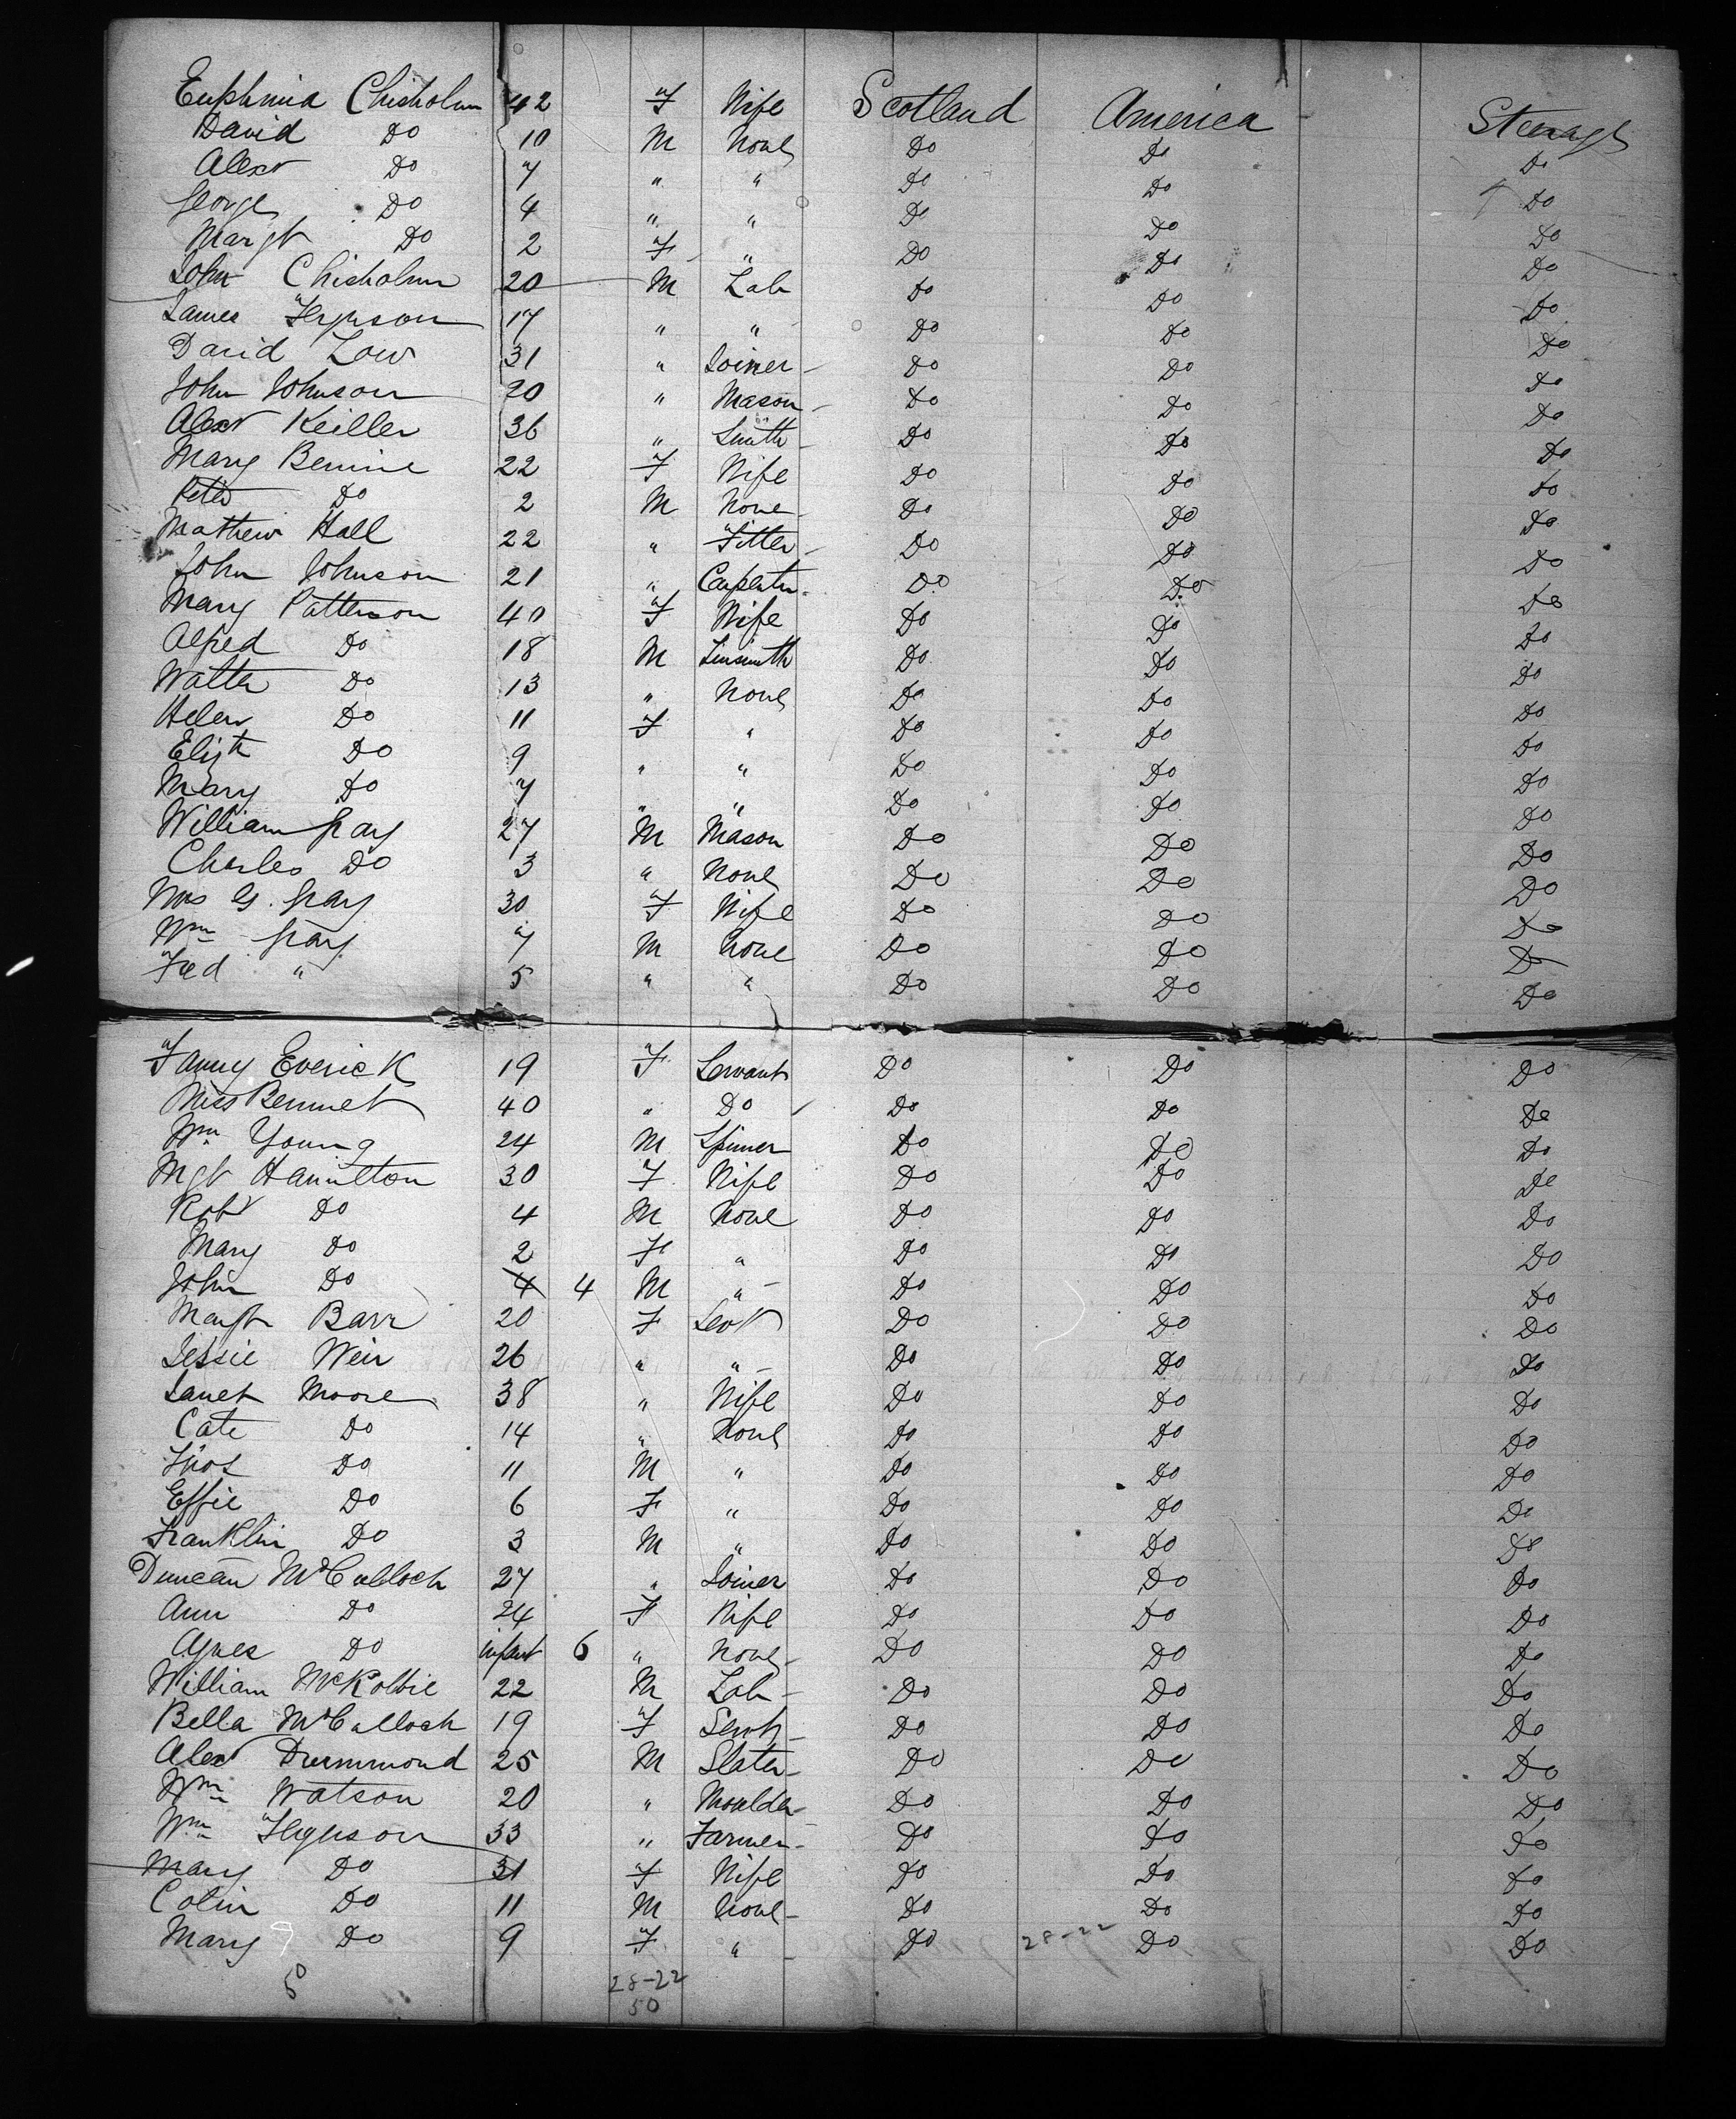 Euphmia Chisholm 42 F Wife Scotland America Steerage
David Do 10 M None Do Do Do
Alexr Do 7 " " Do Do Do
George Do 4 " " Do Do Do
Margt Do 2 F " Do Do Do
John Chisholm 20 M Lab Do Do Do
James Ferguson 17 " " Do Do Do
David Low 31 " Joiner Do Do Do
John Johnson 20 " Mason Do Do Do
Alexr Keiller 36 " Smith Do Do Do
Mary 22 F Wife Do Do Do
Peter Do 2 M None Do Do Do
Mathew Hall 22 " Fitter Do Do Do
John Johnson 21 " Carpenter Do Do Do
Mary Patterson 40 F Wife Do Do Do
Alfred Do 18 M Tinsmith Do Do Do
Walter Do 13 " None Do Do Do
Helen Do 11 F " Do Do Do
Elizth Do 9 " " Do Do Do
Mary Do 7 " " Do Do Do
William Gray 27 M Mason Do Do Do
Charles Do 3 " None Do Do Do
Mrs G. Gray 30 F Wife Do Do Do
Wm Gray 7 M None Do Do Do
Fred " 5 " " Do Do Do
Fanny Everick 19 F Servant Do Do Do
Miss Bennet 40 " Do Do Do Do
Wm Young 24 M Spinner Do Do Do
Mgt Hamilton 30 F Wife Do Do Do
Robt Do 4 M None Do Do Do
Mary Do 2 F " Do Do Do
John Do 4 4 M " Do Do Do
Margt Barr 20 F Servt Do Do Do
Jessie Weir 26 " " Do Do Do
Janet Moore 38 " Wife Do Do Do
Cate Do 14 " None Do Do Do
Thos Do 11 M " Do Do Do
Effie Do 6 F " Do Do Do
Franklin Do 3 M " Do Do Do
Duncan McCulloch 27 " Joiner Do Do Do
Ann Do 24 F Wife Do Do Do
Agnes Do infant 6 " None Do Do Do
William McKolbie 22 M Lab Do Do Do
Bella McCulloch 19 F Servt Do Do Do
Alexr Drummond 25 M Slater Do Do Do
Wm Watson 20 " Moulder Do Do Do
Wm Ferguson 33 " Farmer Do Do Do
Mary Do 31 F Wife Do Do Do
Colin Do 11 M None Do Do Do
Mary Do 9 F " Do 28-22 Do Do
50 28-22
50